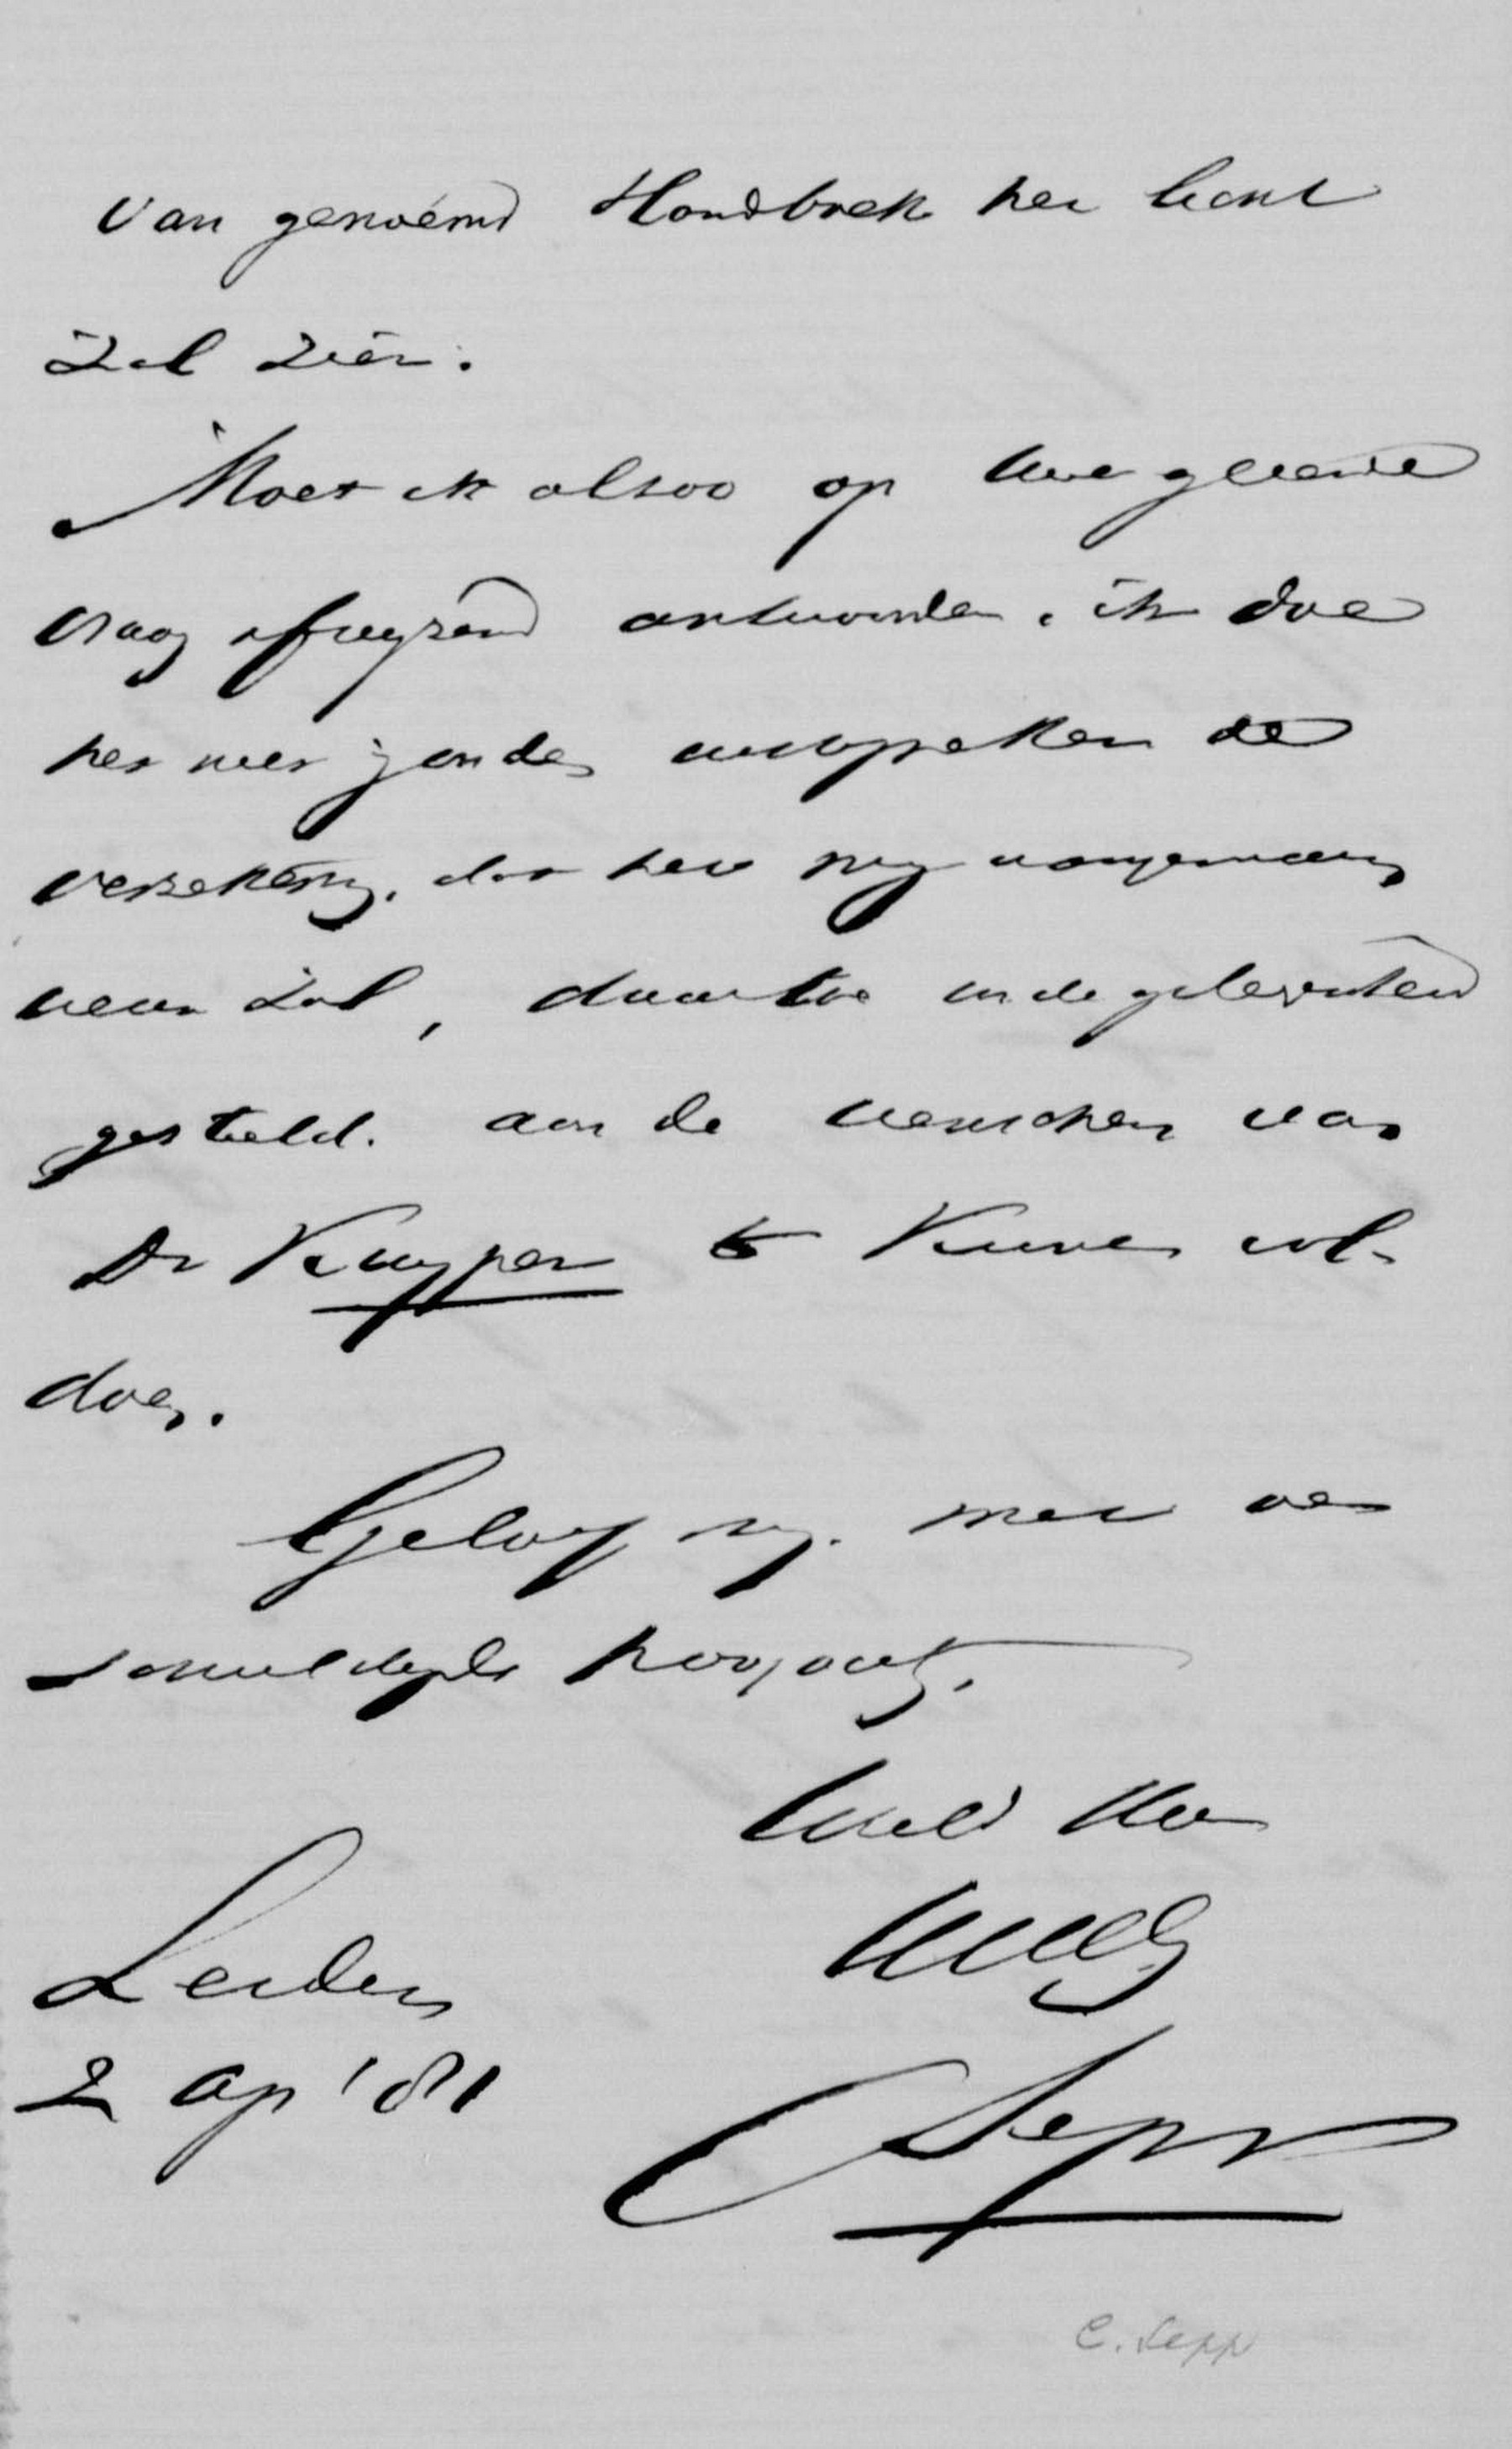 van genoemd Handboek het licht
zal zien.
Moet ik alzoo op Uwe geëerde
vraag afwijzend antwoorden, ik doe
het niet zonder uitspreken de
verzekering, dat het mij aangenaam
wezen zal, daartoe in de gelegenheid
gesteld, aan de wenschen van
Dr Kuyper te kunnen vol-
doen.
Geloof mij, met ver
schuldigde hoogacht,
UwelEd
Leiden
2 Ap '81
C Sepp
C. Sepp